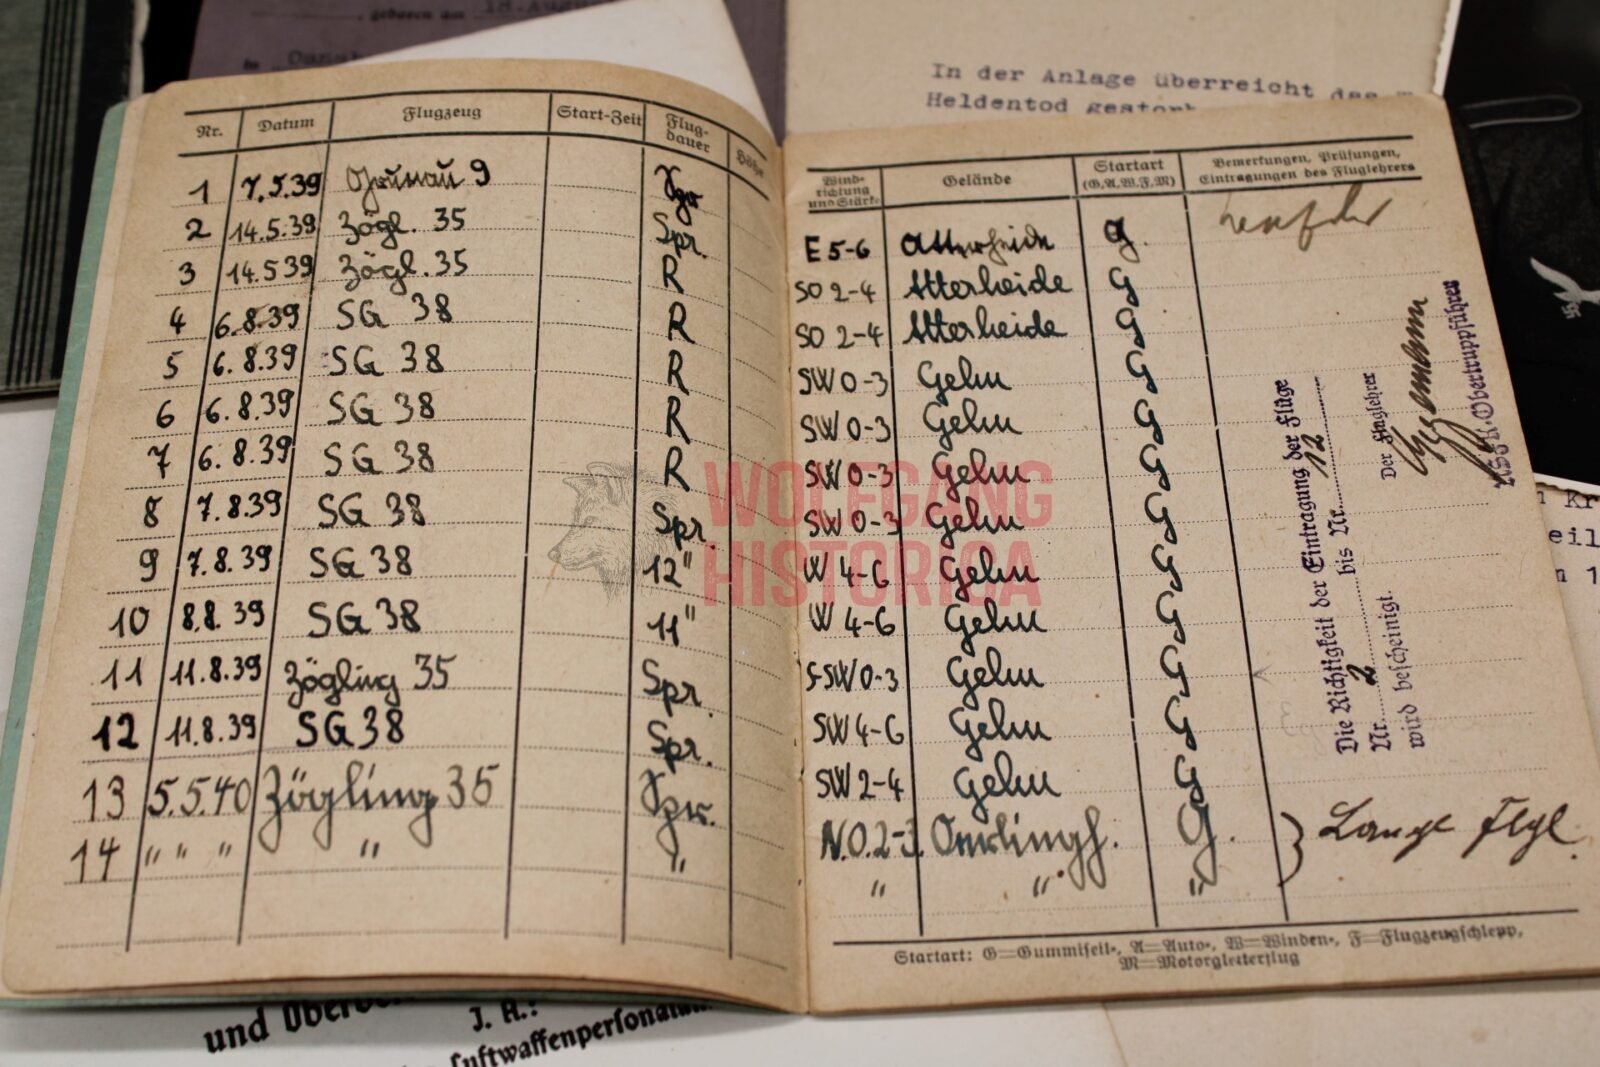 geboren am 18. Augu
In der Anlage überreicht das
Heldentod gestorb
Nr. Datum Flugzeug Start-Zeit Flug-dauer Höhe
1 7.5.39 Grunau 9 Spr
2 14.5.39 Zögl. 35 Spr.
3 14.5.39 Zögl. 35 R
4 6.8.39 SG 38 R
5 6.8.39 SG 38 R
6 6.8.39 SG 38 R
7 6.8.39 SG 38 R
8 7.8.39 SG 38 Spr.
9 7.8.39 SG 38 12"
10 8.8.39 SG 38 11"
11 11.8.39 Zögling 35 Spr.
12 11.8.39 SG 38 Spr.
13 5.5.40 Zögling 35 Spr.
14 " " " " "
Wind-richtung und Stärke Gelände Startart (G.A.W.F.M) Bemerkungen, Prüfungen, Eintragungen des Fluglehrers
E 5-6 Atterheide G.
SO 2-4 Atterheide G
SO 2-4 Atterheide G
SW 0-3 Gehn G
SW 0-3 Gehn G
SW 0-3 Gehn G
SW 0-3 Gehn G
W 4-6 Gehn G
W 4-6 Gehn G
SSW 0-3 Gehn G
SW 4-6 Gehn G
SW 2-4 Gehn G
N.O. 2-3. Oerlingh. G. Lange Flgl.
" " "
Die Richtigkeit der Eintragung der Flüge
Nr. 2 bis Nr. 12
wird bescheinigt.
Der Fluglehrer
NSFK.-Obertruppführer
Startart: G=Gummiseil-, A=Auto-, W=Winden-, F=Flugzeugschlepp,
M=Motorgleiterflug
WOLFGANG
HISTORICA
und Überwe
J. A.:
Luftwaffenpersonalam